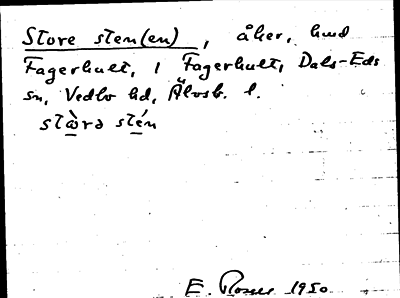 Store sten(en), åker, hmd
Fagerhult, 1 Fagerhult, Dals-Eds
sn, Vedbo hd, Älvsb. l.
stòra stén
E. 1950